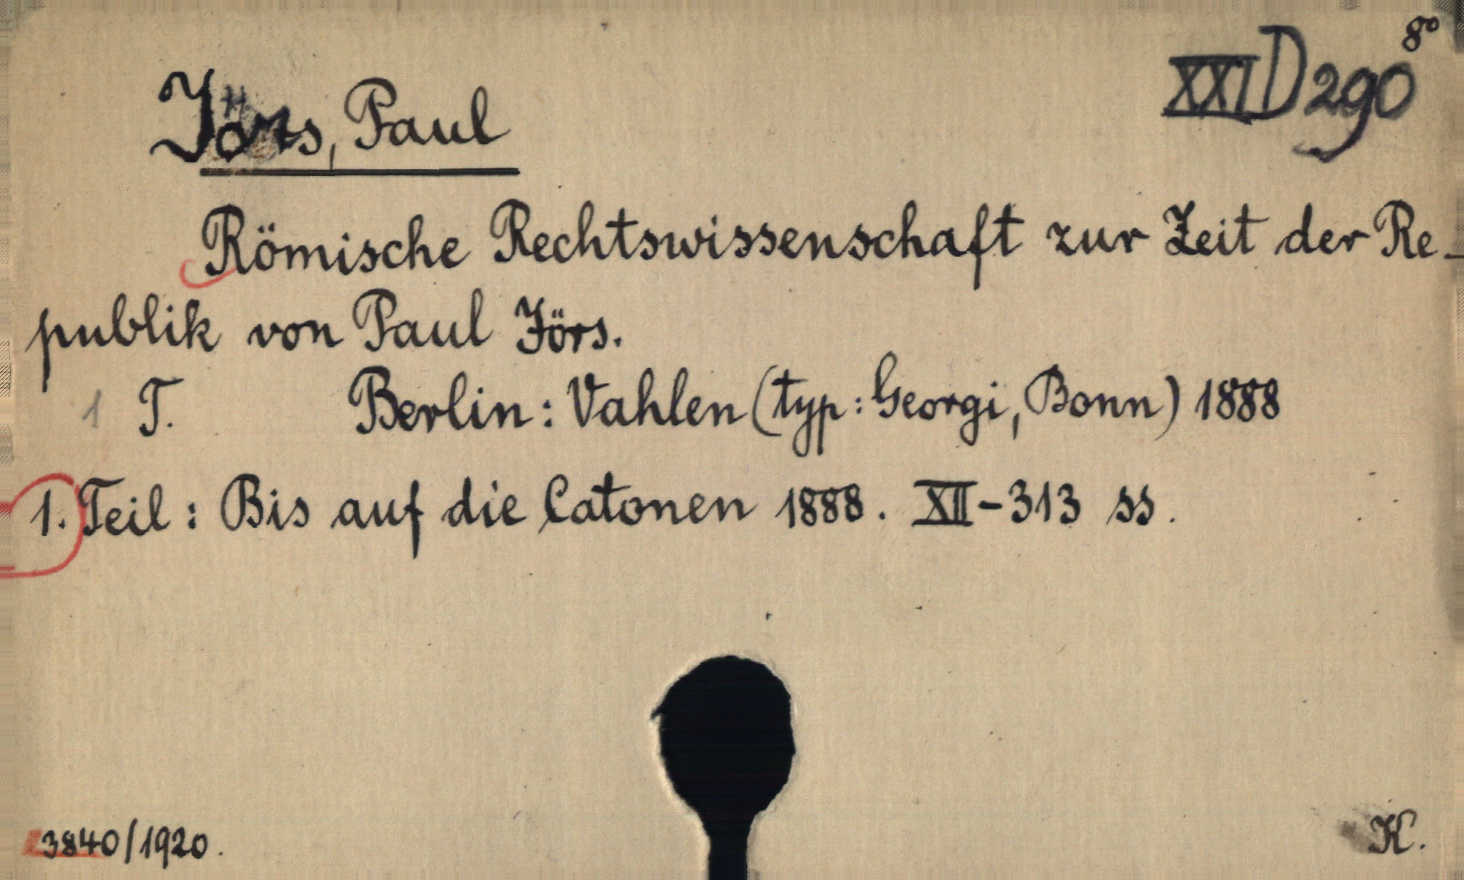 8°
XXI D 290
Jörs, Paul
Römische Rechtswissenschaft zur Zeit der Re-
publik von Paul Jörs.
1 T. Berlin: Vahlen (typ: Georgi, Bonn) 1888
1. Teil: Bis auf die Catonen 1888. XII-313 ss.
3840/1920.
K.